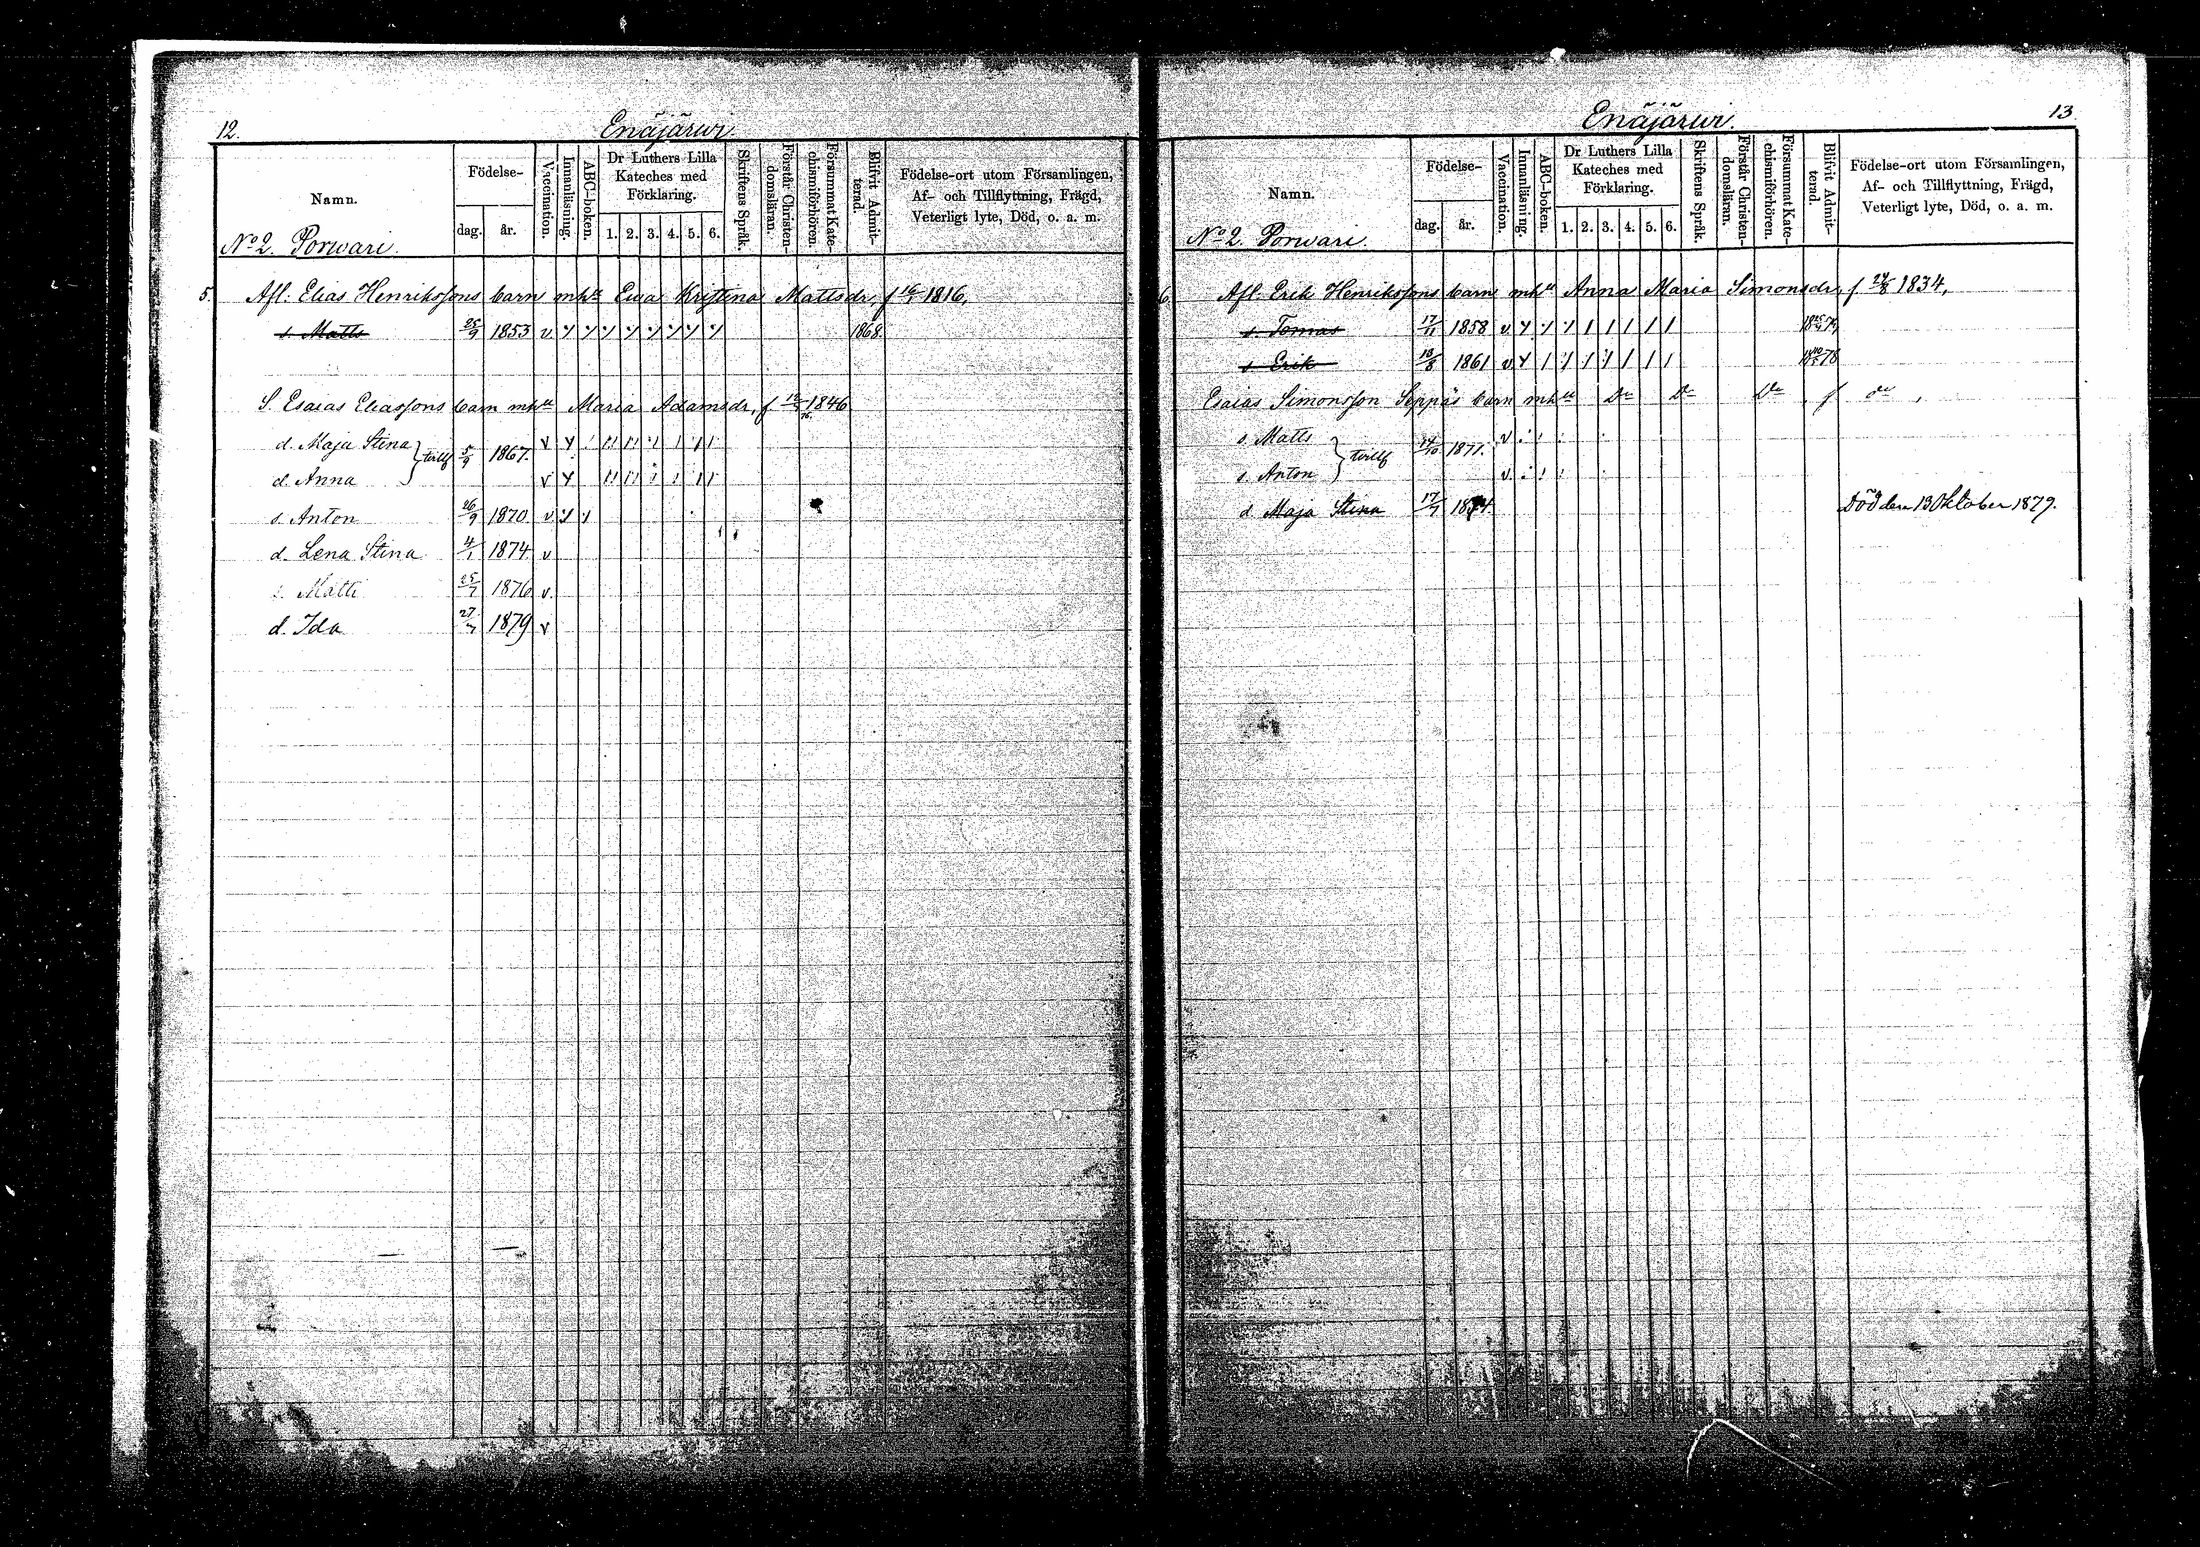 12.
Enäjärwi.
Namn.
Födelse-
dag.
år.
Vaccination.
Innanläsning.
ABC-boken.
Dr Luthers Lilla Kateches med Förklaring.
1. 2. 3. 4. 5. 6.
Skriftens Språk.
Förstår Christendomsläran.
Försummat Katechismiförhören.
Blifvit Admitterad.
Födelse-ort utom Församlingen,
Af- och Tillflyttning, Frägd,
Veterligt lyte, Död, o. a. m.
No 2. Porwari.
5. Afl: Elias Henrikssons barn mhu Ewa Kristina Mattsdr, f 16/7 1816,
s. Matts 25/9 1853 v. 1868.
S. Esaias Eliassons barn mhu Maria Adamsdr, f. 1846
d. Maja Stina } tvill 5/9 1867. v
d. Anna v
s. Anton 26/9 1870 v
d. Lena Stina 4/1 1874 v
s. Matti 25/7 1876 v.
d. Ida 27/7 1879 v
13.
Enäjärwi.
Namn.
Födelse-
dag.
år.
Vaccination.
Innanläsning.
ABC-boken.
Dr Luthers Lilla Kateches med Förklaring.
1. 2. 3. 4. 5. 6.
Skriftens Språk.
Förstår Christendomsläran.
Försummat Katechismiförhören.
Blifvit Admitterad.
Födelse-ort utom Församlingen,
Af- och Tillflyttning, Frägd,
Veterligt lyte, Död, o. a. m.
No 2. Porwari.
6. Afl. Erik Henrikssons barn mhu Anna Maria Simonsdr, f. 24/8 1834,
s. Tomas 17/11 1858 v
s. Erik 10/8 1861 v
Esaias Simonsson Seppäs barn mhu Do Do Do, f do,
s. Matts } tvill 14/10 1871. v
s. Anton v.
d. Maja Stina 17/7 1874. Död den 13 Oktober 1879.